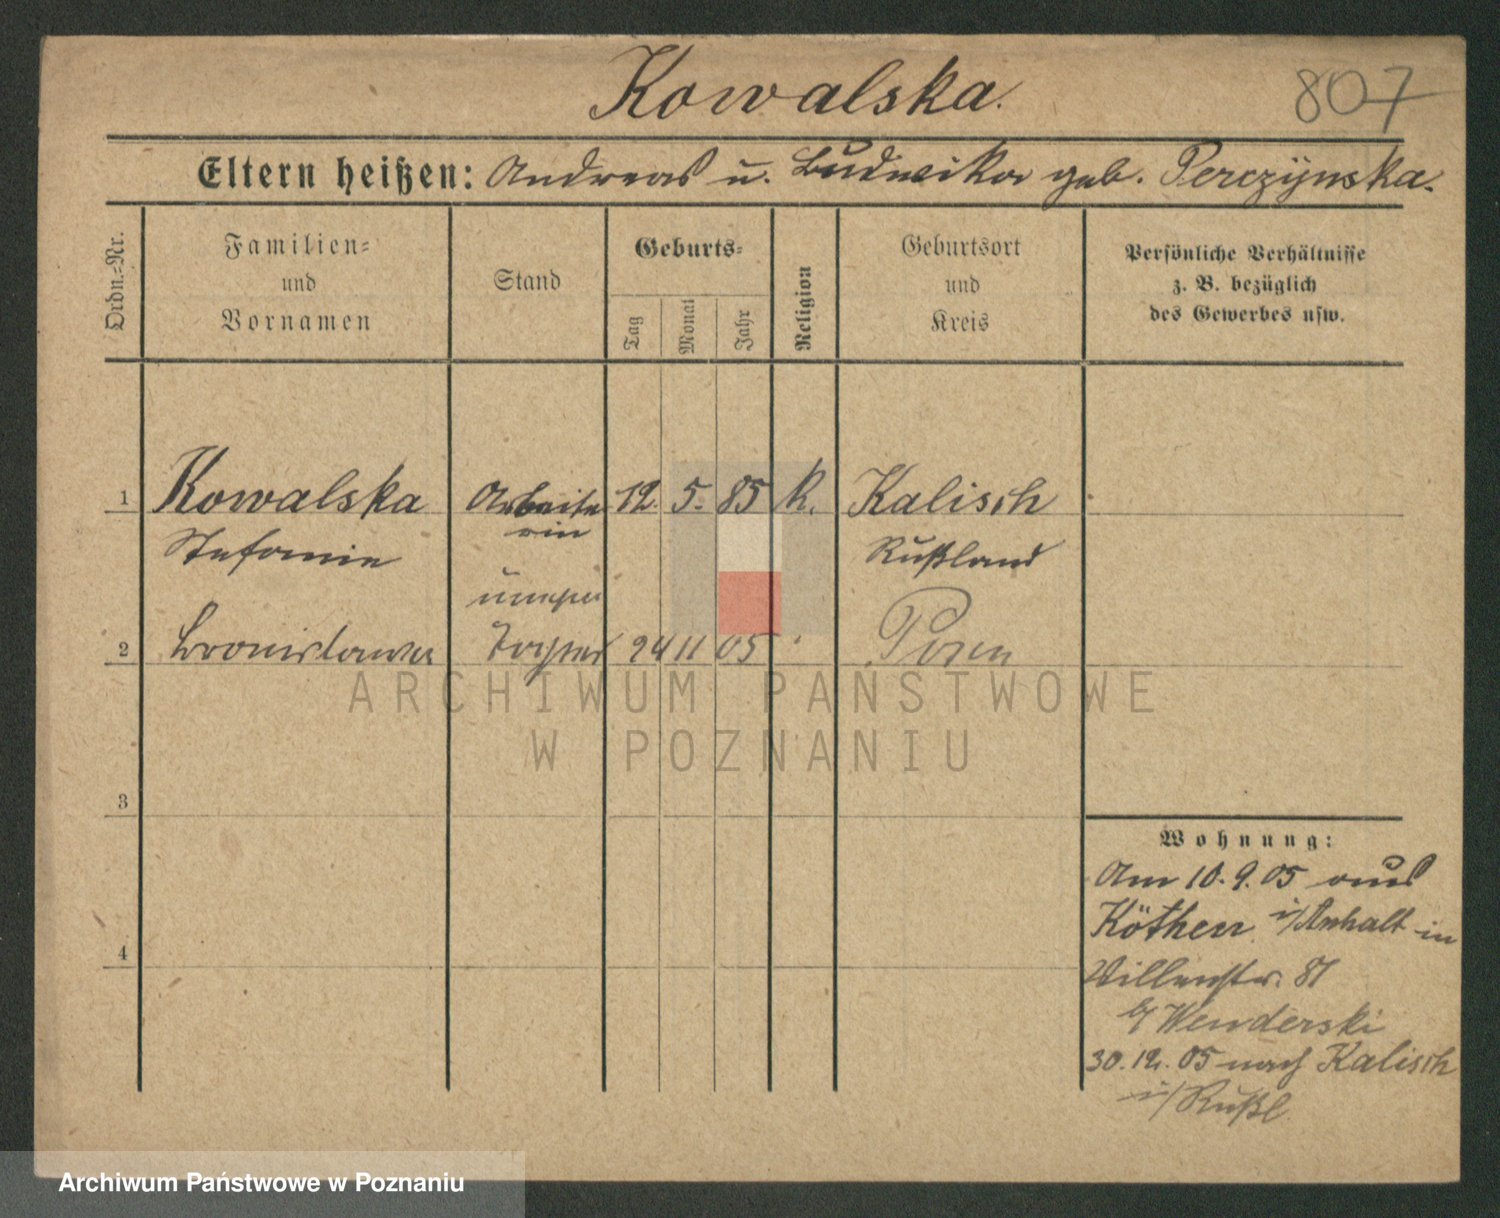 Kowalska.
807
Eltern heißen: Andreas u. Ludwika geb. Perczynska.
Ordn.=Nr.
Familien=
und
Vornamen
Stand
Geburts=
Tag
Monat
Jahr
Religion
Geburtsort
und
Kreis
Persönliche Verhältnisse
z. B. bezüglich
des Gewerbes usw.
1 Kowalska Arbeite 12. 5. 85 K. Kalisch
Stefanie rin Rußland
2 Bronislawa Tochter 24 11 05 Posen
3
4
Wohnung:
Am 10. 9. 05 aus
Köthen i/Anhalt in
81
Wenderski
30. 12. 05 nach Kalisch
i/Rußl
ARCHIWUM PAŃSTWOWE
W POZNANIU
Archiwum Państwowe w Poznaniu